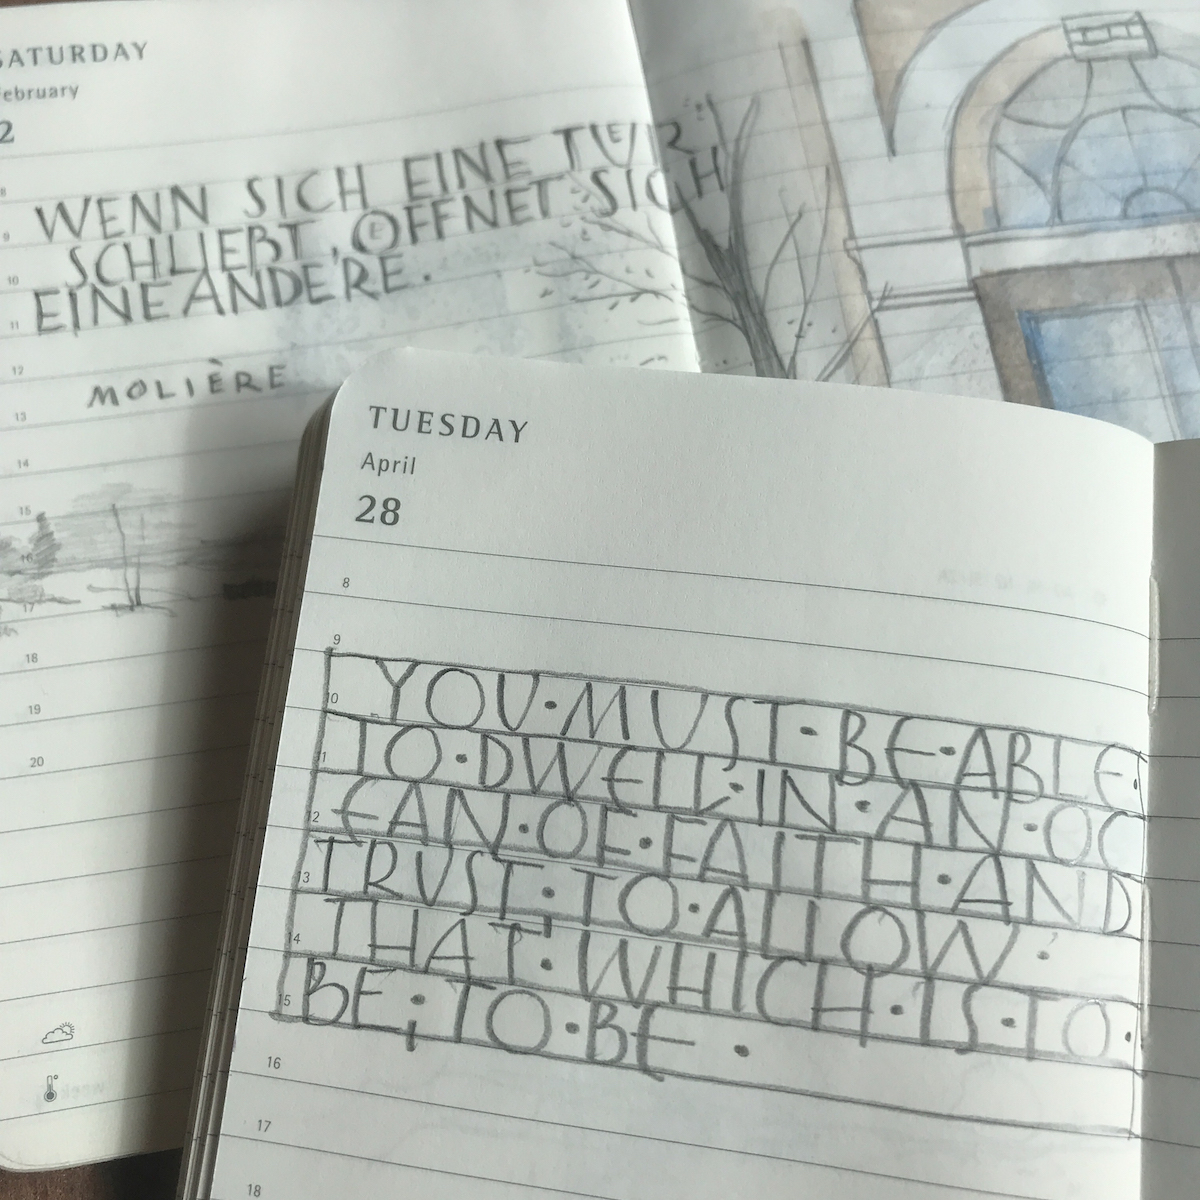 SATURDAY
February
2
8
9
10
11
12
13
14
15
16
17
18
19
20
WENN SICH EINE TUER
SCHLIEßT, OEFFNET SICH
EINE ANDERE.
MOLIÈRE
TUESDAY
April
28
8
9
10
11
12
13
14
15
16
17
18
YOU·MUST·BE·ABLE·
TO·DWELL·IN·AN·OC
EAN·OF·FAITH·AND
TRUST·TO·ALLOW·
THAT·WHICH·IS·TO·
BE, TO·BE·